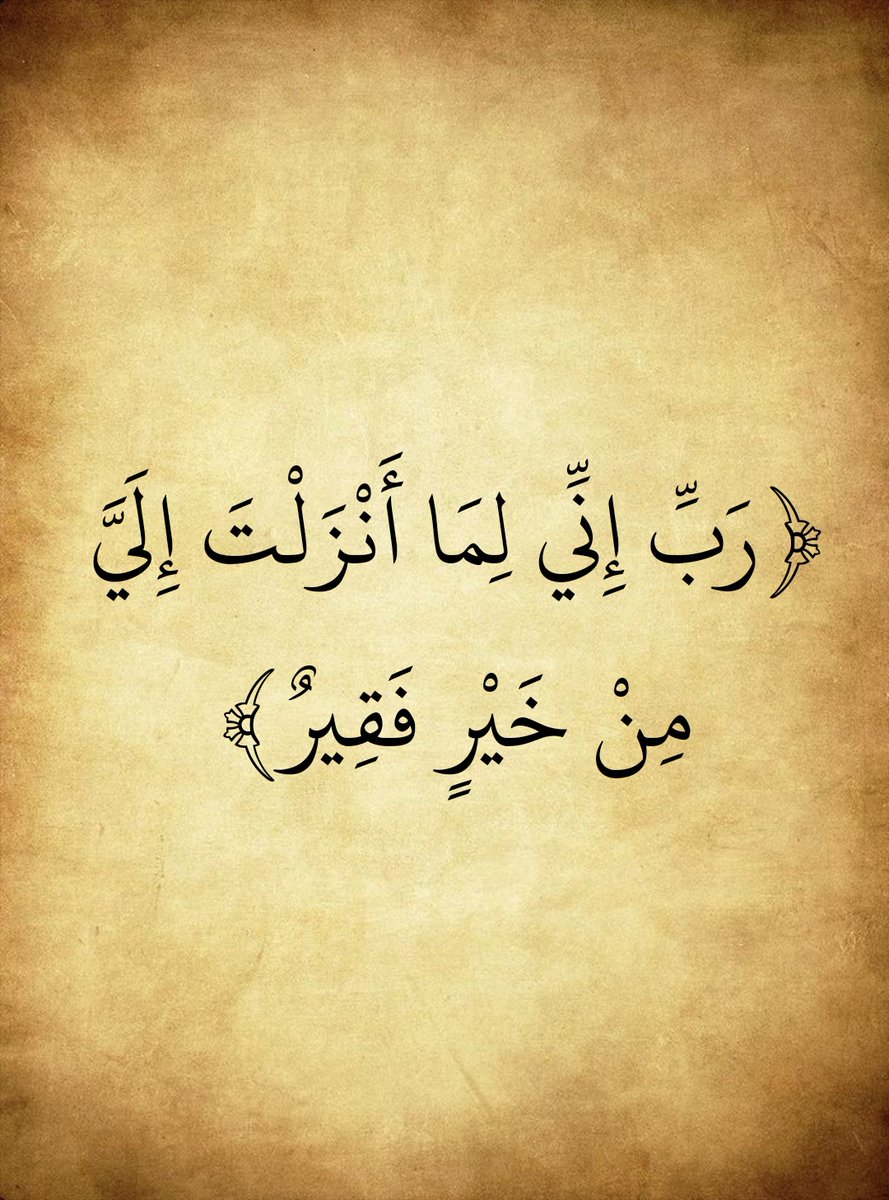 ﴿رَبِّ إِنِّي لِمَا أَنْزَلْتَ إِلَيَّ
مِنْ خَيْرٍ فَقِيرٌ﴾